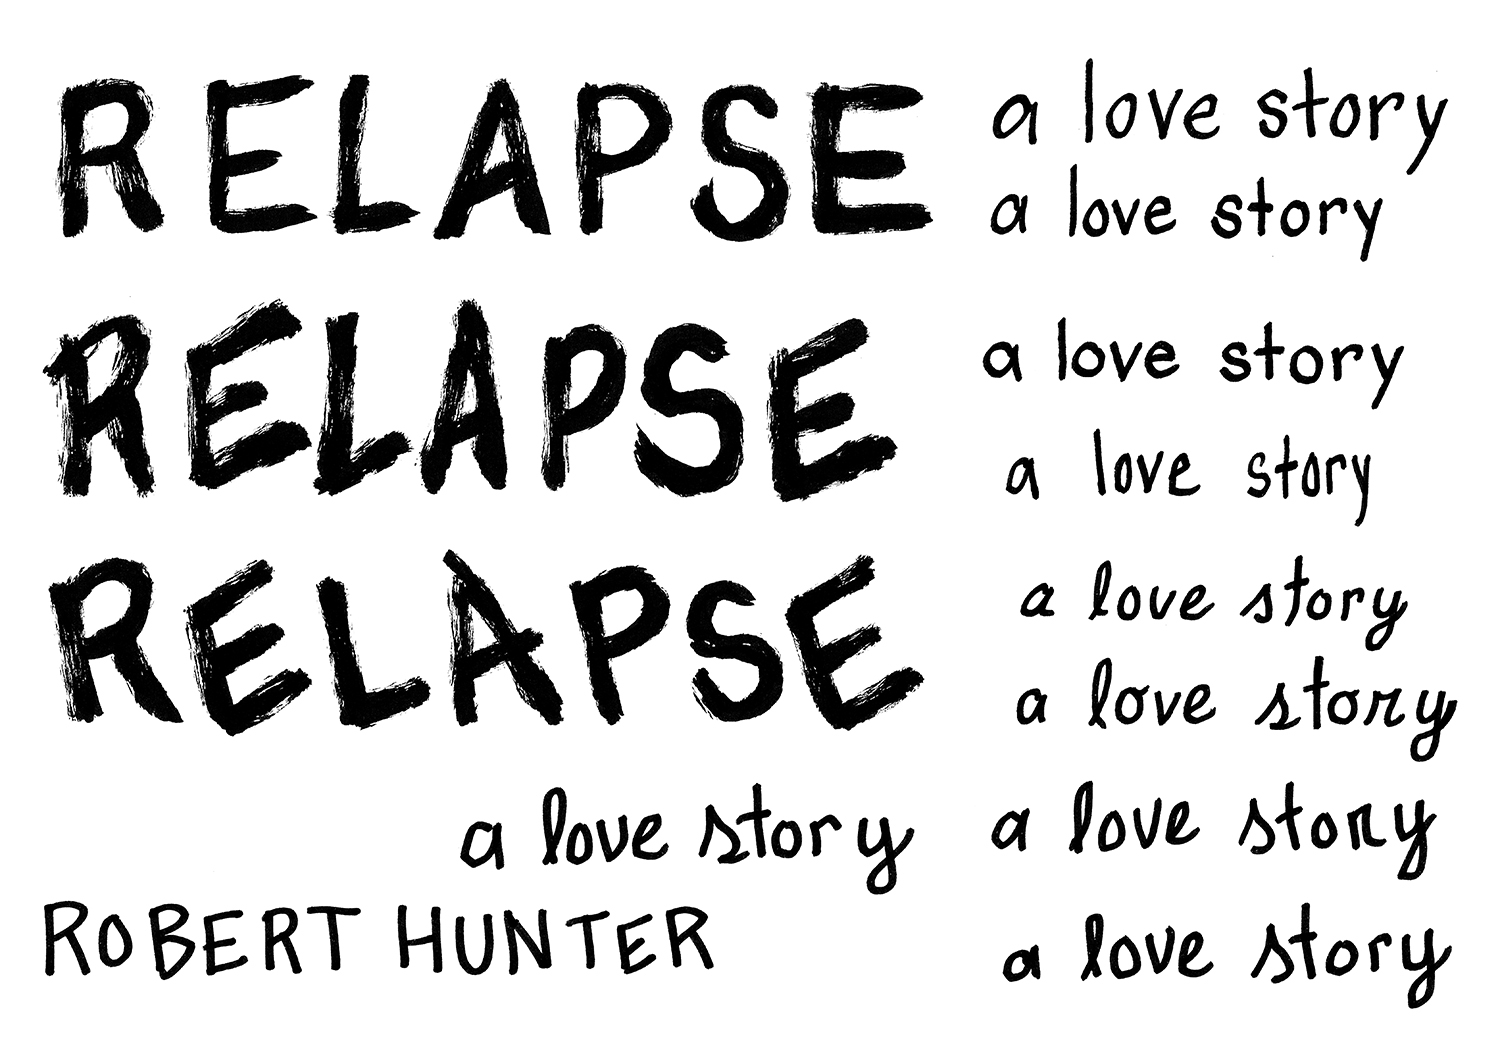 RELAPSE
a love story
a love story
RELAPSE
a love story
a love story
RELAPSE
a love story
a love story
a love story
a love story
ROBERT HUNTER
a love story